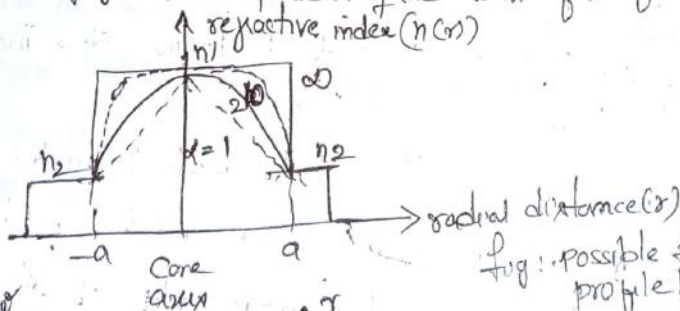 refractive index (n(r))
n1
∞
2
10
α=1
n2
n2
-a
a
radial distance (r)
Core
axis
fig: possible
profile